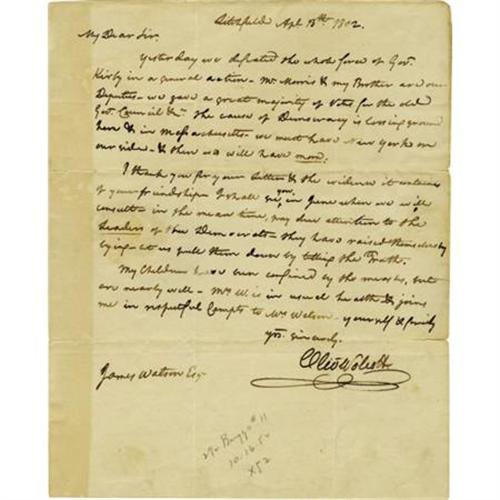 Litchfield Apl 13th 1802.
My Dear Sir,
Yesterday we defeated the whole force of Gov.
Kirby in a general action - Mr Morris & my Brother are our
Deputies - we gave a great majority of Votes for the old
Gov. Council &c. The cause of Democracy is loosing ground
here & in Massachusetts - we must have New York on
our side - & then we will have more.
I thank you for your Letter & the evidence it contains
of your friendship. I shall see you in June when we will
consult - in the mean time, pay due attention to the
Leaders of the Democrats - they have raised themselves by
lying - let us pull them down by telling the Truth.
My Children have been confined by the measles, but
are nearly well - Mrs W. is in usual health & joins
me in respectful Compts to Mrs Watson - yourself & family
yrs. sincerely.
Oliv Wolcott
James Watson Esqr
10.16.52
X52